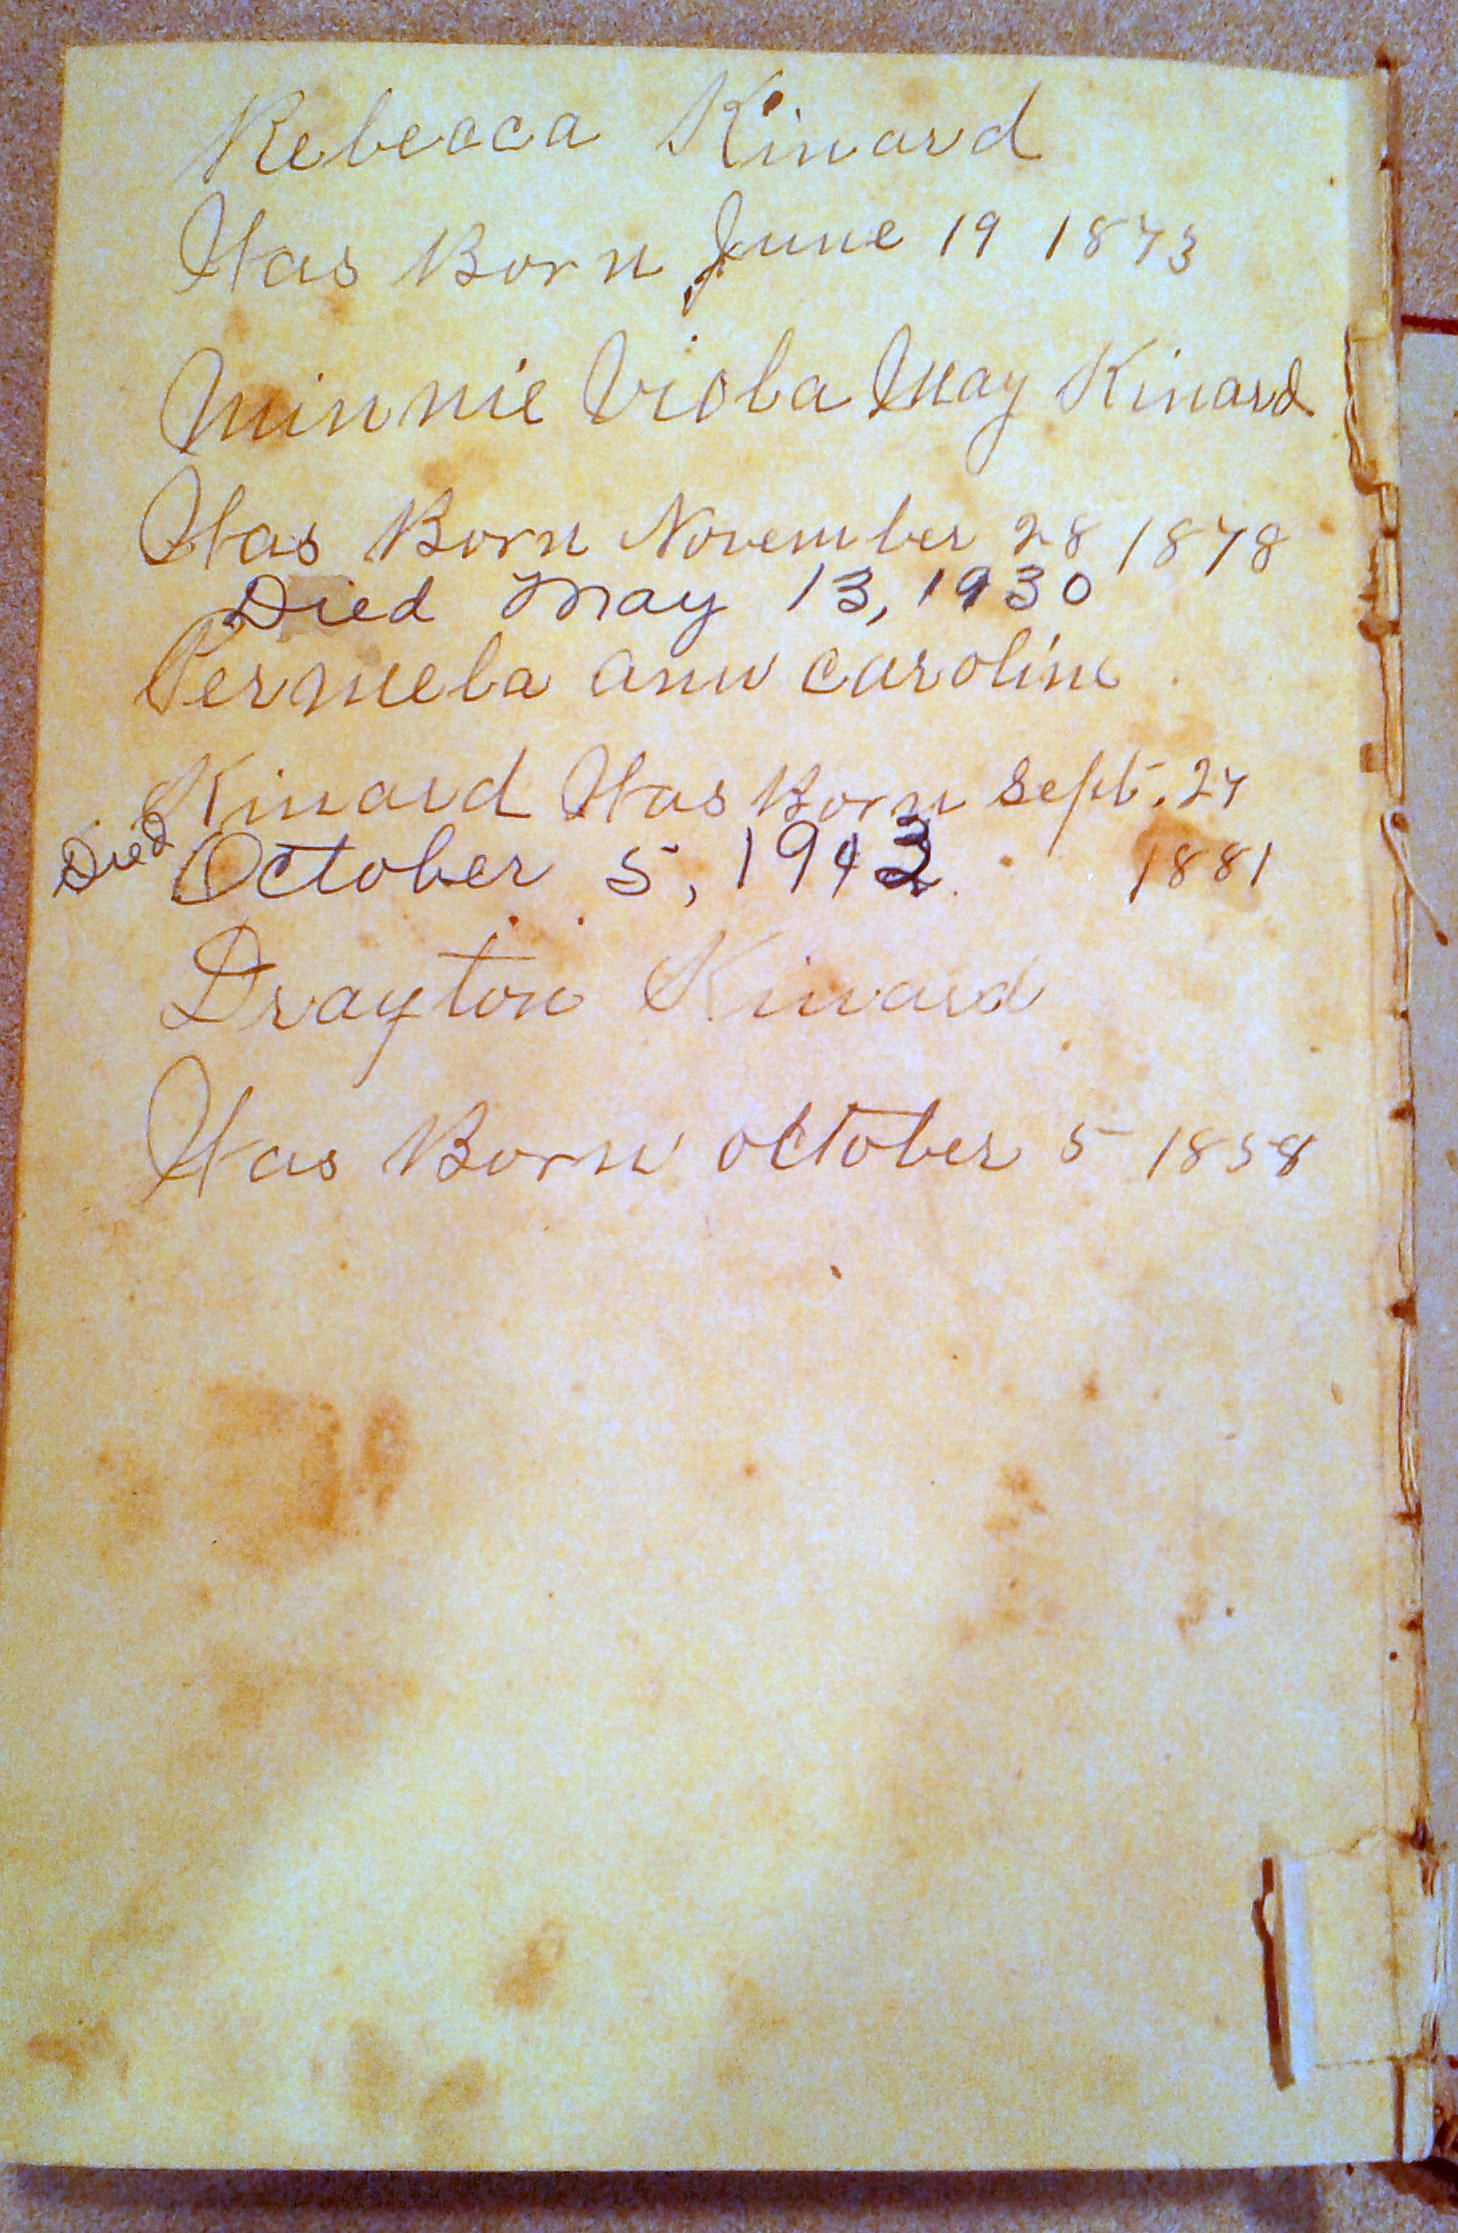 Rebecca Kinard
Was Born June 19 1873
Minnie Viola May Kinard
Was Born November 28 1878
Died May 13, 1930
Permela ann caroline
Kinard Was Born Sept. 27
1881
Died October 5, 1943
Drayton Kinard
Was Born october 5 1858